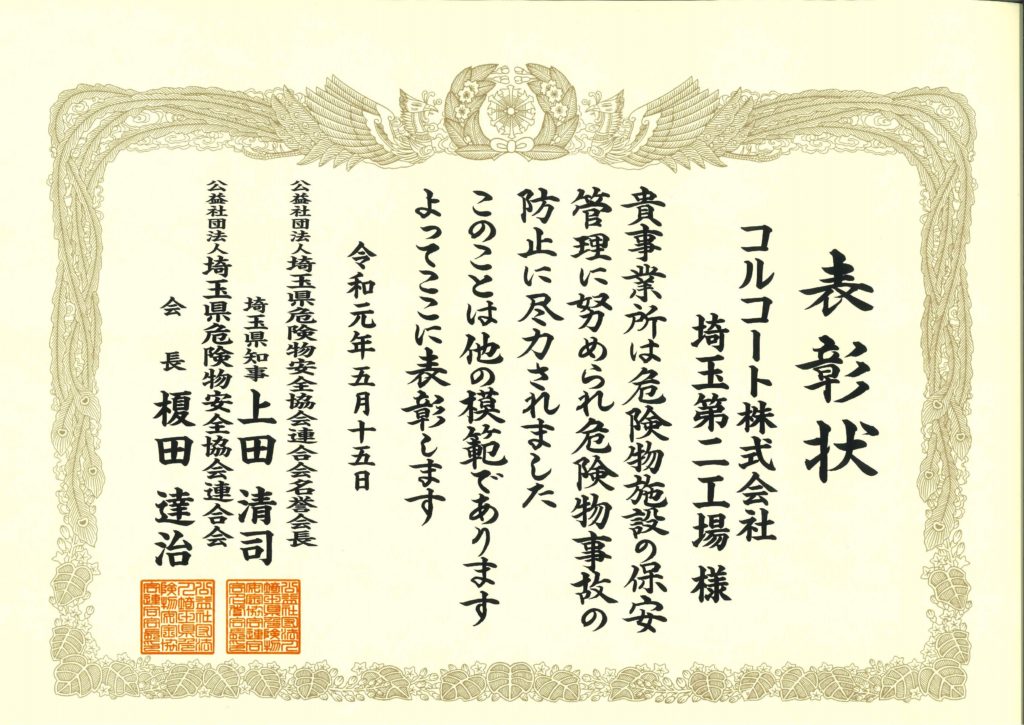 表彰状
コルコート株式会社
埼玉第二工場様
貴事業所は危険物施設の保安
管理に努められ危険物事故の
防止に尽力されました
このことは他の模範であります
よってここに表彰します
令和元年五月十五日
公益社団法人埼玉県危険物安全協会連合会名誉会長
埼玉県知事 上田清司
公益社団法人埼玉県危険物安全協会連合会
会長 榎田達治